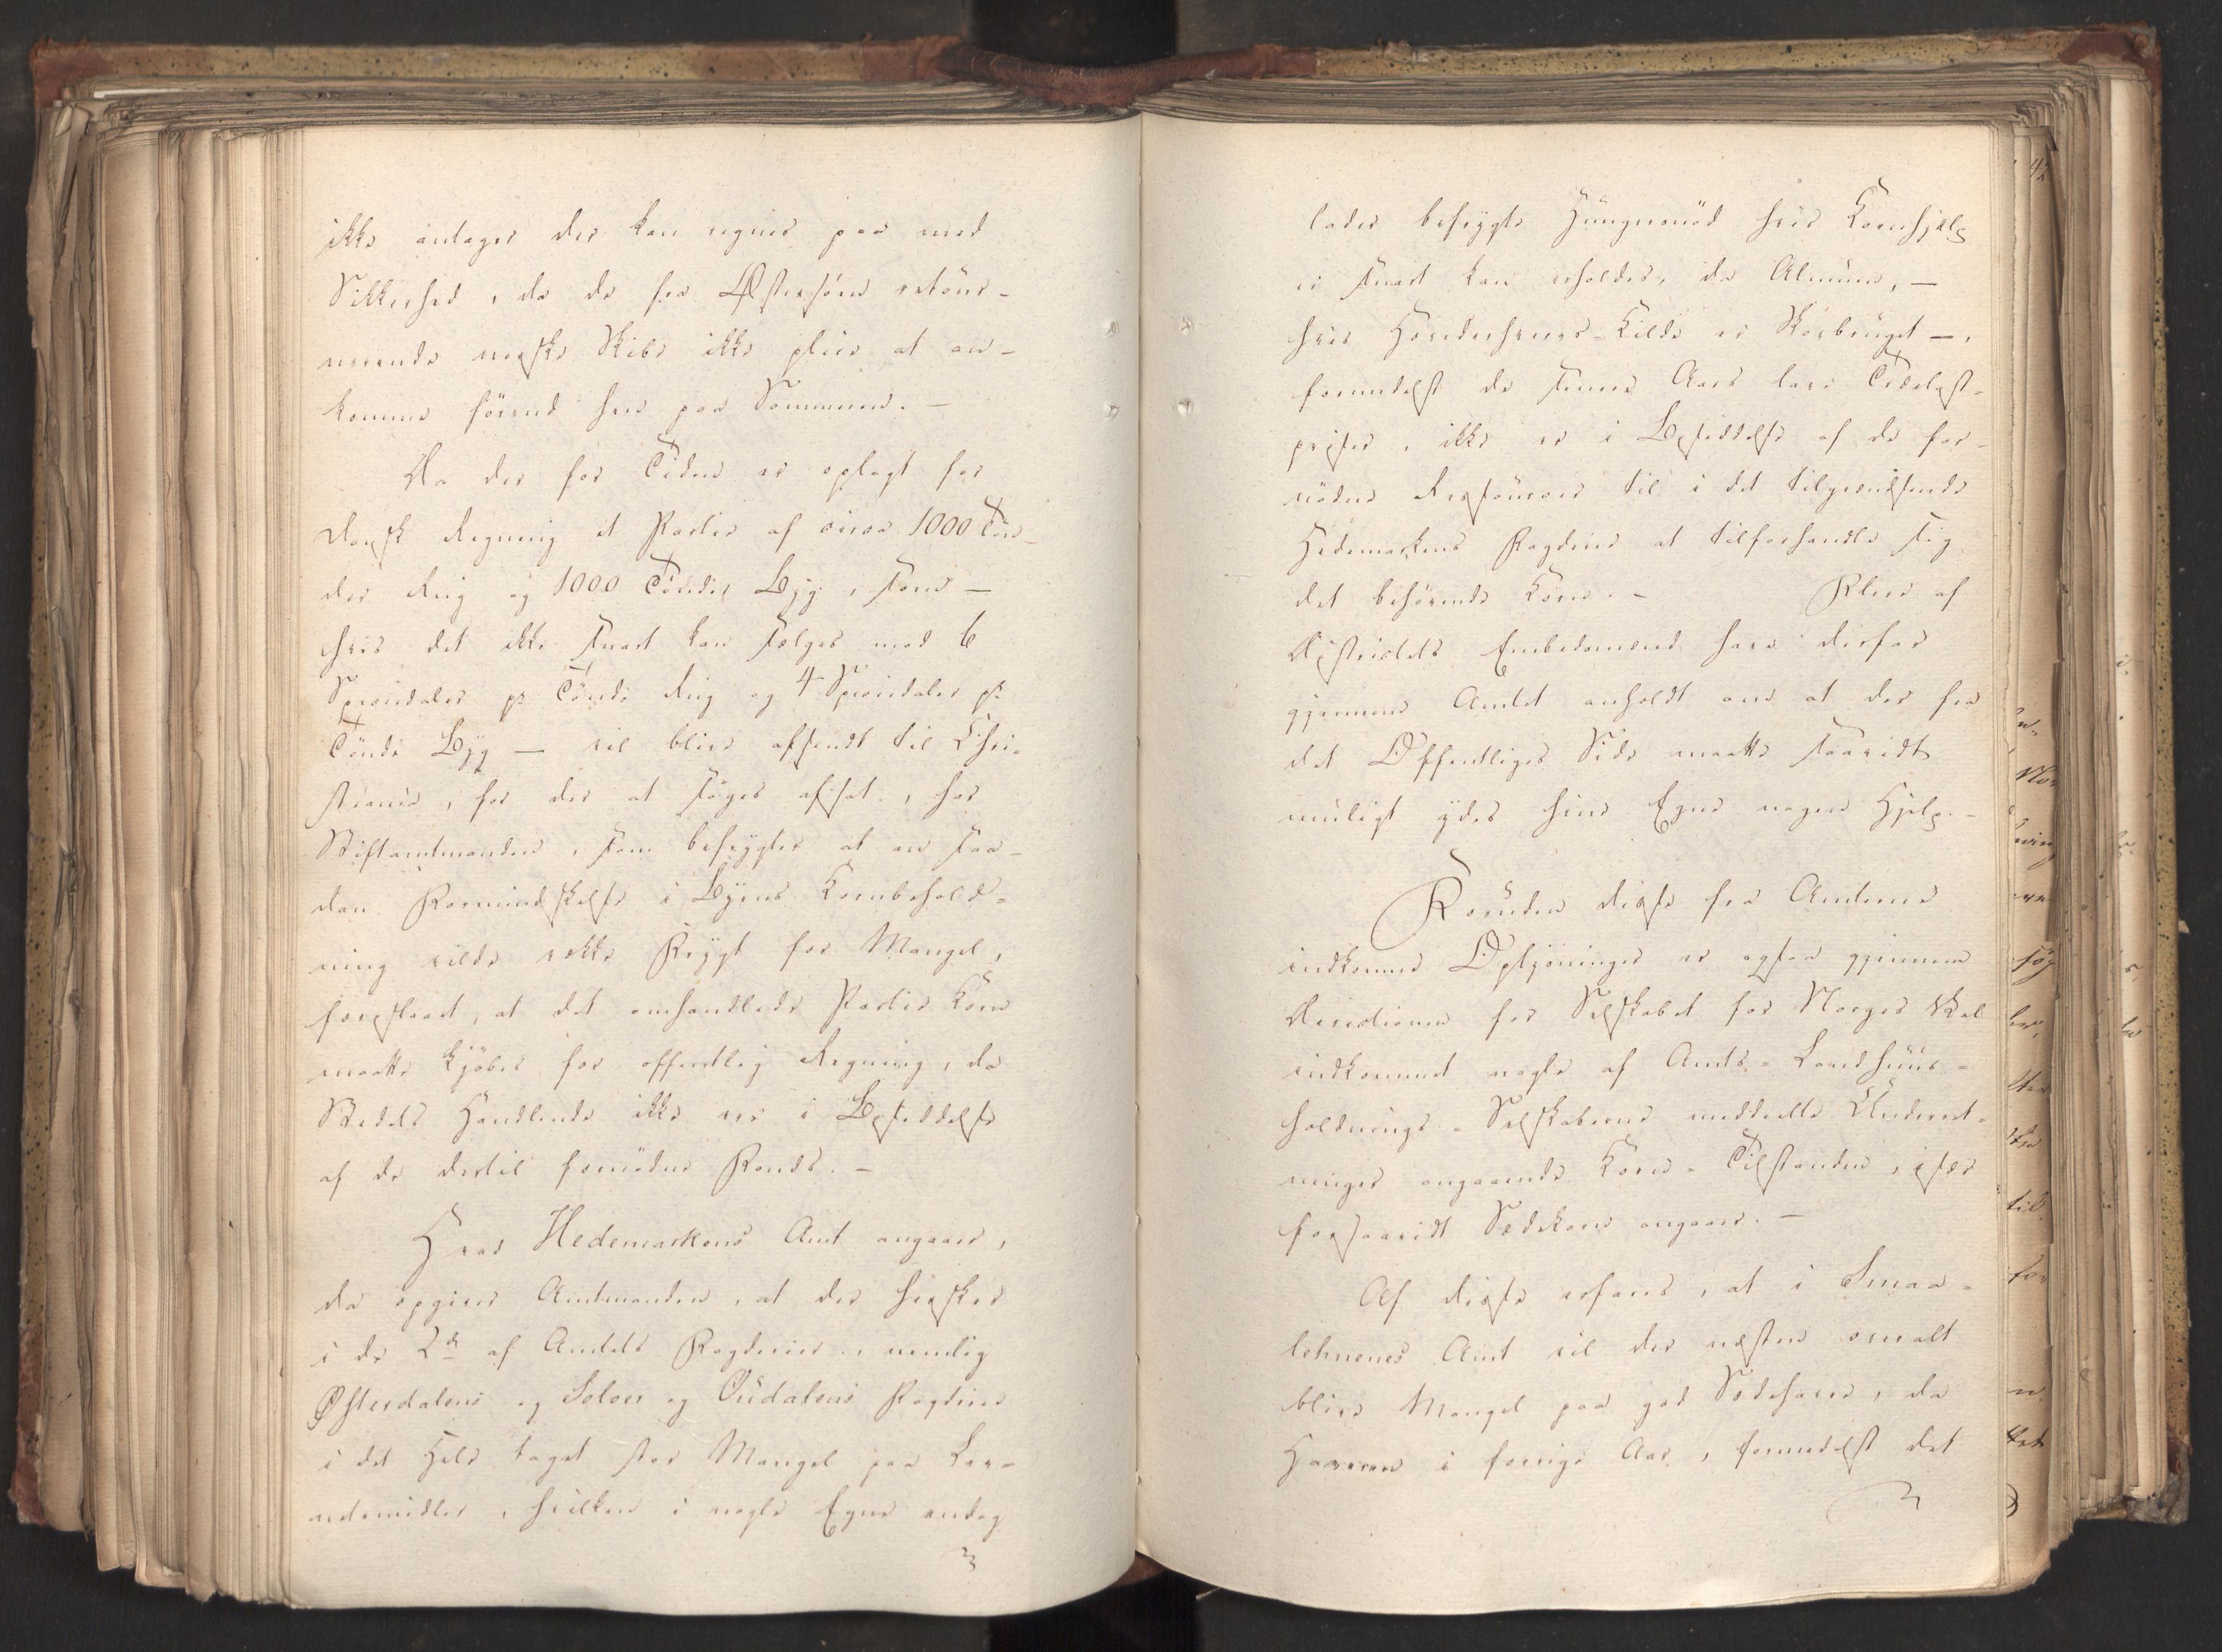 ikke antager der kan regnes paa med
Sikkerhed, da de fra Østersöen retour-
nerende norske Skibe ikke pleie at an-
komme förend hen paa Sommeren. —
Da der for Tiden er oplagt for
dansk Regning et Partie af circa 1000 Tön-
der Rug og 1000 Tönder Byg, som —
hvis det ikke snart kan sælges med 6
Speciedaler pr Tönde Rug og 4 Speciedaler pr
Tönde Byg — vil blive afsendt til Chri-
stiania, for der at söges afsat, har
Stiftamtmanden, som befrygter at en saa-
dan Formindskelse i Byens Kornbehold-
ning vilde vække Frygt for Mangel,
foreslaaet, at det omhandlede Partie Korn
maatte kjöbes for offentlig Regning, da
Stedets Handlende ikke ere i Besiddelse
af de dertil fornödne Fonds. —
Hvad Hedemarkens Amt angaaer,
da opgiver Amtmanden, at der hersker
i de 2de af Amtets Fogderier, nemlig
Østerdalens og Soloer og Oudalens Fogderier
i det Hele taget stor Mangel paa Lev-
netsmidler, hvilken i nogle Egne endog
lader befrygte Hungersnöd hvis Kornhjelp
ei snart kan erholdes, da Almuen, —
hvis Hovederhvervs-Kilde er Skovbruget —,
formedelst de senere Aars lave Trælast-
priser, ikke er i Besiddelse af de for-
nödne Ressourcer til i det tilgrændsende
Hedemarkens Fogderie at tilforhandle sig
det behövende Korn. — Flere af
Districtets Embedsmænd have derfor
gjennem Amtet anholdt om at der fra
det Offentliges Side maatte saavidt
muligt ydes hine Egne nogen Hjelp. —
Foruden disse fra Amterne
indkomne Oplysninger er ogsaa gjennem
Directionen for Selskabet for Norges Vel
indkommet nogle af Amts-Landhuus-
holdnings-Selskaberne meddeelte Underret-
ninger angaaende Korn-Tilstanden, især
forsaavidt Sædekorn angaaer. —
Af disse erfares, at i Smaa-
lehnenes Amt vil der næsten overalt
blive Mangel paa god Sædehavre, da
Havren i forrige Aar, formedelst det